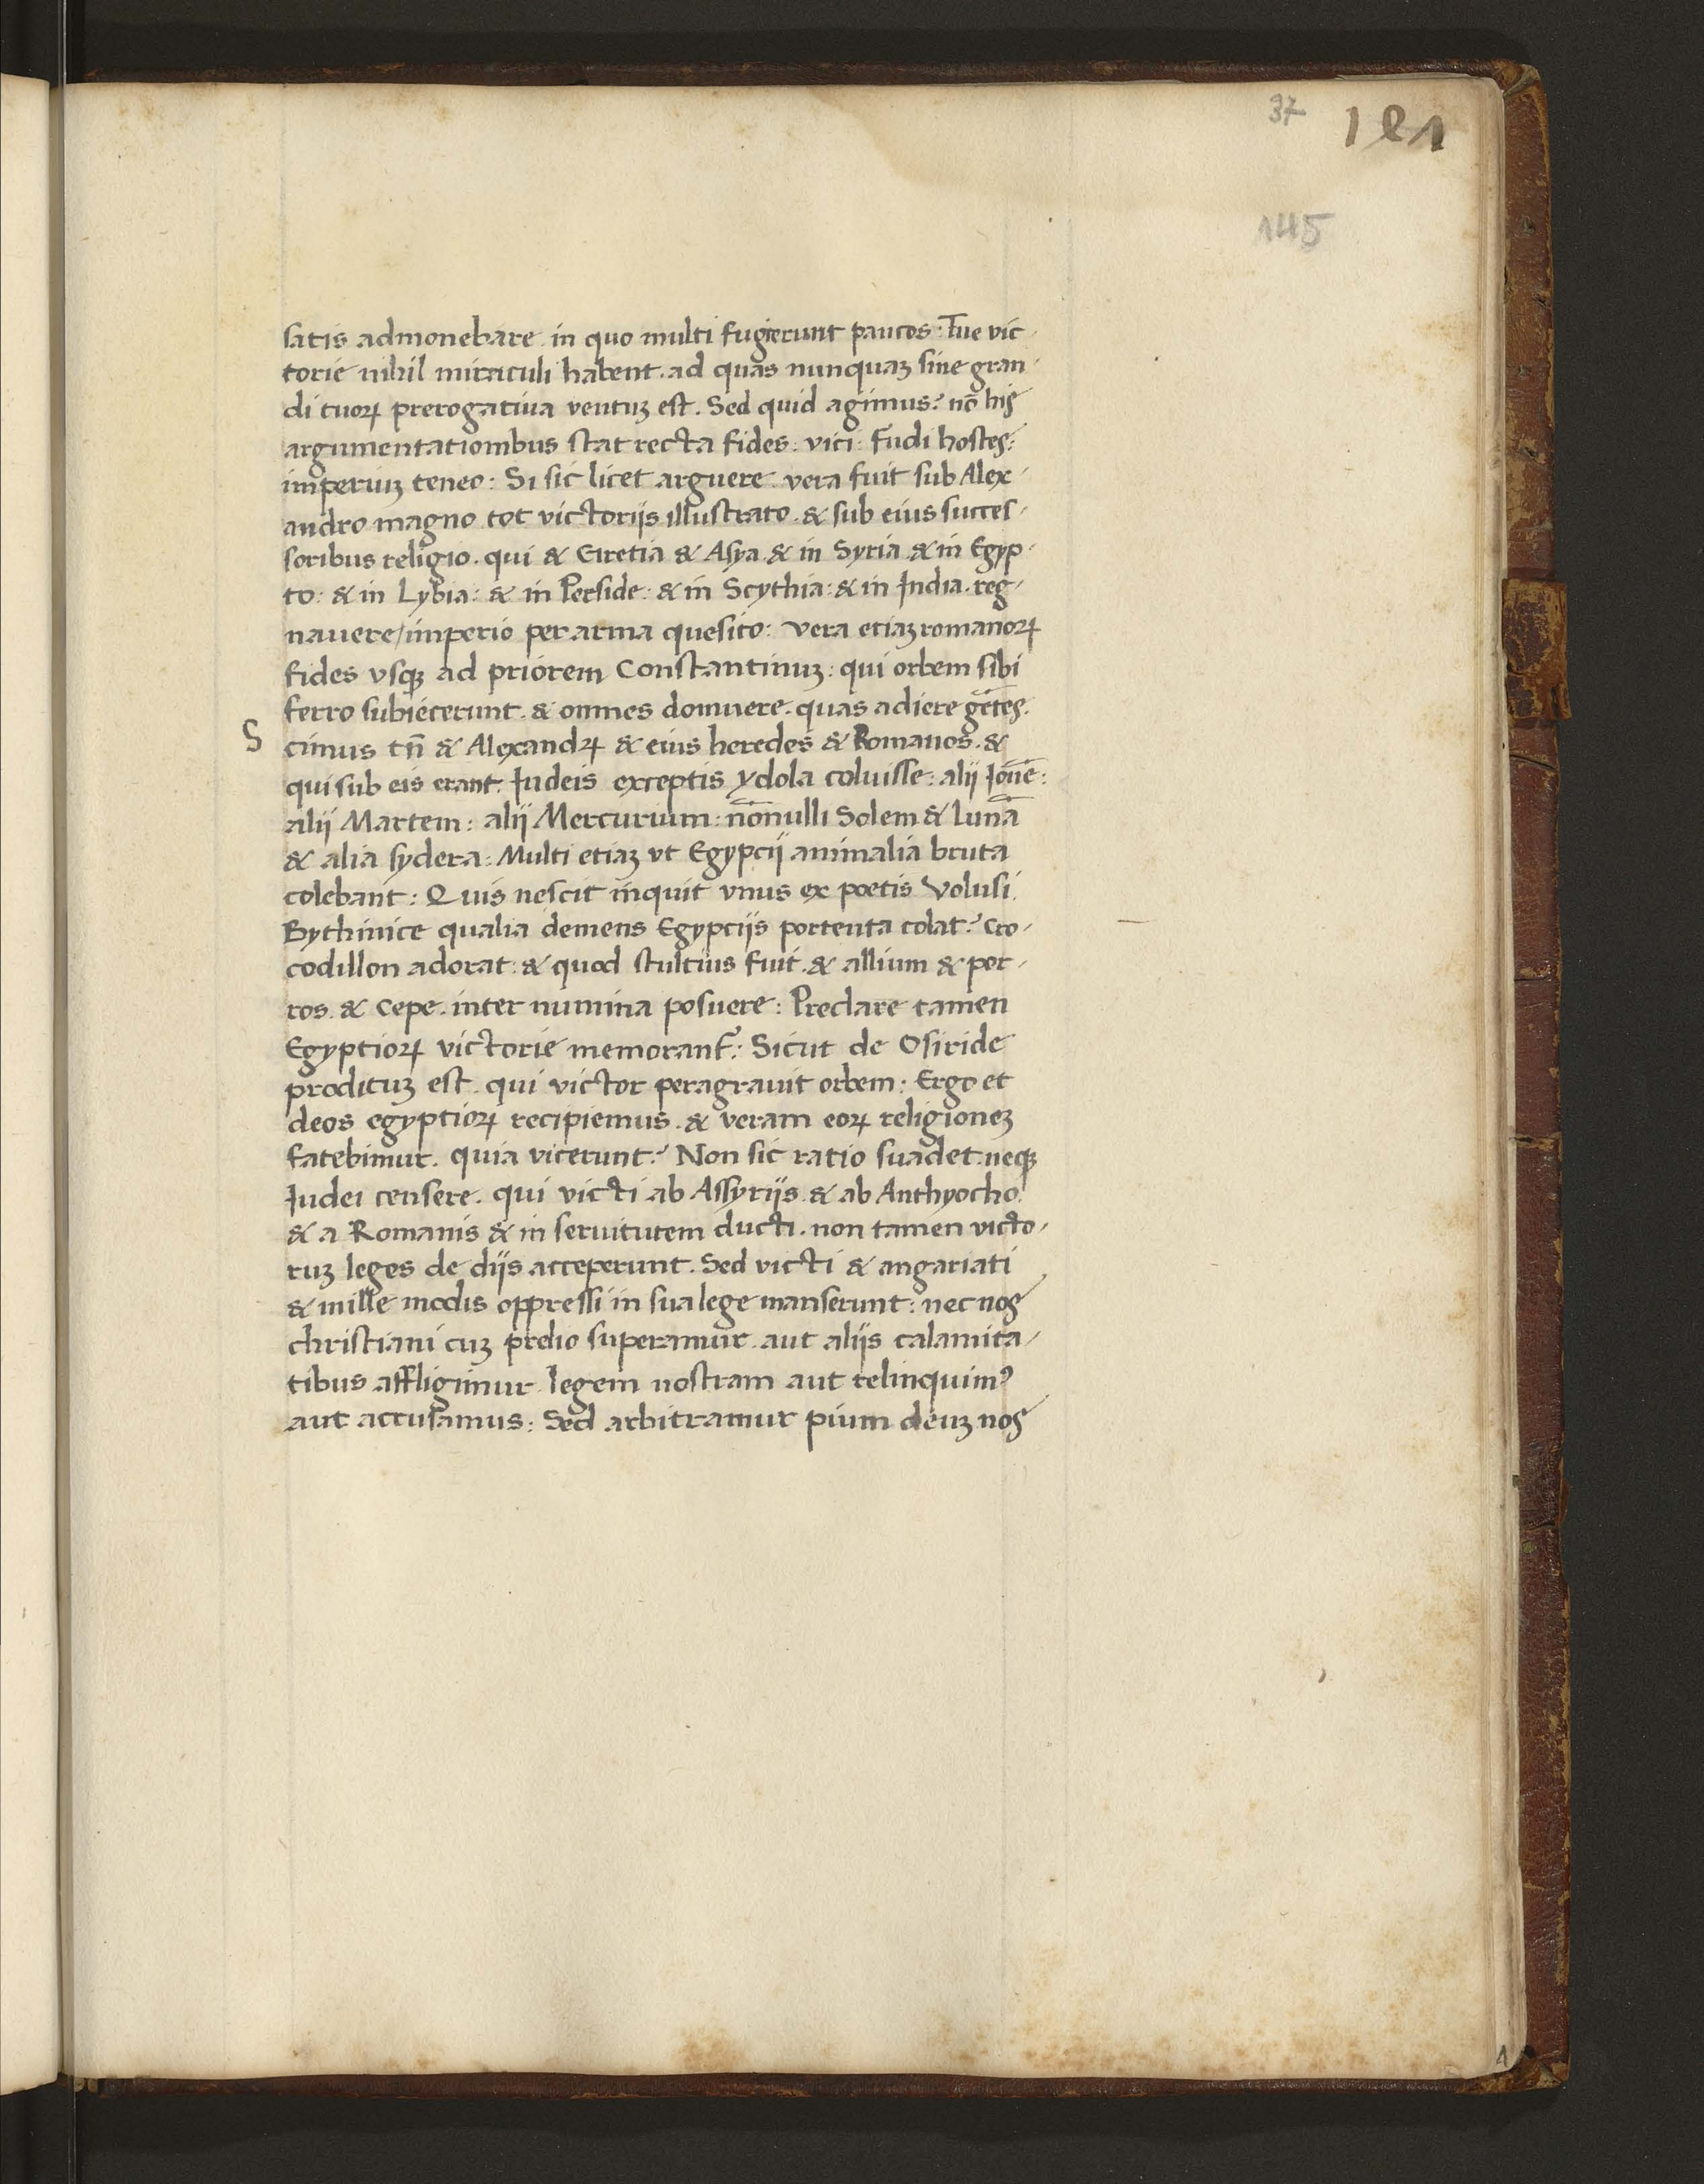 37
181
145
satis admonebare in quo multi fugierunt paucos: Tue vic-
torie nihil miraculi habent. ad quas nunquaꝫ sine gran-
di tuoꝝ prerogatiua ventuꝫ est. Sed quid agimus? nō his
argumentationibus stat recta fides: vici: fudi hostes:
imperiuꝫ teneo: Si sic licet arguere vera fuit sub Alex-
andro magno tot victorijs illustrato. & sub eius succes-
soribus religio. qui & Gretia & Asya & in Syria & in Egyp-
to: & in Lybia: & in Perside: & in Scythia: & in India. reg-
nauere/imperio per arma quesito: vera etiaꝫ romanoꝝ
fides vsqꝫ ad priorem Constantinuꝫ: qui orbem sibi
ferro subiecerunt. & omnes domuere. quas adiere gētes.
S cimus tn̄ & Alexandꝝ & eius heredes & Romanos. &
qui sub eis erant. Iudeis exceptis ydola coluisse: alij Iouē:
alij Martem: alij Mercurium: nōnulli Solem & Lunā
& alia sydera: Multi etiaꝫ vt Egypcij animalia bruta
colebant: Quis nescit inquit vnus ex poetis Volusi
Bythinice qualia demens Egypcijs portenta colat? Cro-
codillon adorat: & quod stultius fuit. & allium & por-
ros. & cepe. inter numina posuere: Preclare tamen
Egyptioꝝ victorie memorant᷑: Sicut de Osiride
prodituꝫ est. qui victor peragrauit orbem: Ergo et
deos egyptioꝝ recipiemus. & veram eoꝝ religioneꝫ
fatebimur. quia vicerunt? Non sic ratio suadet. neqꝫ
Iudei censere. qui victi ab Assyrijs & ab Anthyocho
& a Romanis & in seruitutem ducti. non tamen victo-
ruꝫ leges de dijs acceperunt. Sed victi & angariati
& mille modis oppressi in sua lege manserunt: nec nos
christiani cuꝫ prelio superamur. aut alijs calamita-
tibus affligimur legem nostram aut relinquimꝰ
aut accusamus: Sed arbitramur pium deuꝫ nos